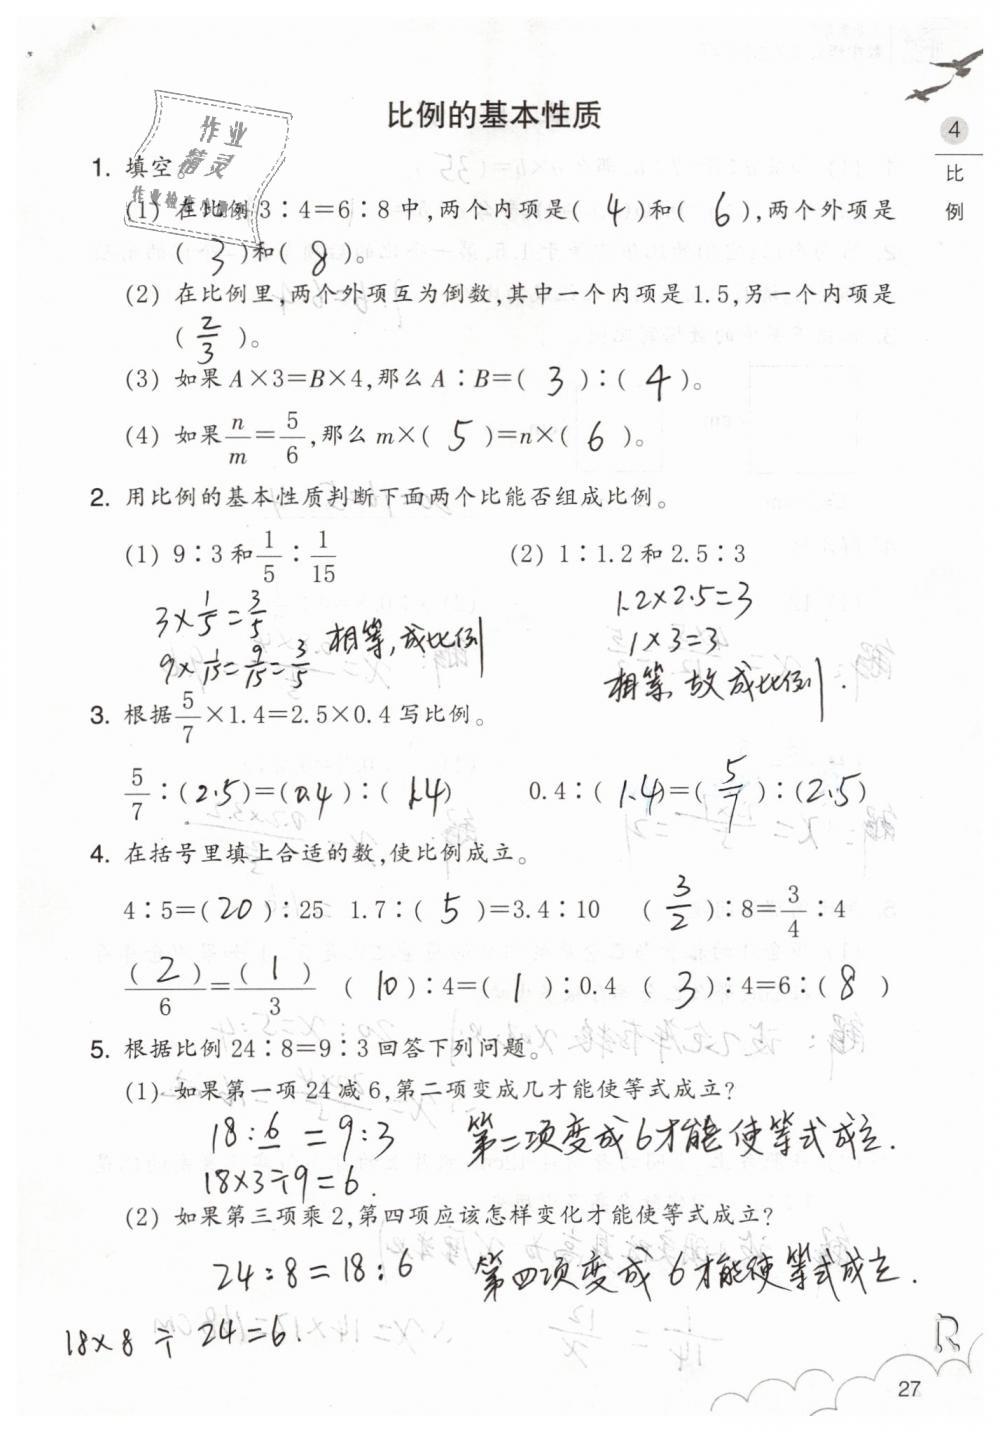 比例的基本性质
4
比
例
作业
精灵
1. 填空。
(1) 在比例 3∶4=6∶8 中,两个内项是( 4 )和( 6 ),两个外项是
( 3 )和( 8 )。
(2) 在比例里,两个外项互为倒数,其中一个内项是 1.5,另一个内项是
( 2/3 )。
(3) 如果 A×3=B×4,那么 A∶B=( 3 )∶( 4 )。
(4) 如果 n/m=5/6,那么 m×( 5 )=n×( 6 )。
2. 用比例的基本性质判断下面两个比能否组成比例。
(1) 9∶3 和 1/5∶1/15 (2) 1∶1.2 和 2.5∶3
3×1/5=3/5 1.2×2.5=3
9×1/15=9/15=3/5 相等,成比例 1×3=3
相等 故成比例.
3. 根据 5/7×1.4=2.5×0.4 写比例。
5/7∶(2.5)=(0.4)∶(1.4) 0.4∶(1.4)=(5/7)∶(2.5)
4. 在括号里填上合适的数,使比例成立。
4∶5=(20)∶25 1.7∶( 5 )=3.4∶10 ( 3/2 )∶8=3/4∶4
( 2 )/6=( 1 )/3 ( 10 )∶4=( 1 )∶0.4 ( 3 )∶4=6∶( 8 )
5. 根据比例 24∶8=9∶3 回答下列问题。
(1) 如果第一项 24 减 6,第二项变成几才能使等式成立?
18:6=9:3 第二项变成6才能使等式成立.
18×3÷9=6.
(2) 如果第三项乘 2,第四项应该怎样变化才能使等式成立?
24:8=18:6 第四项变成6才能使等式成立.
18×8÷24=6.
R
27